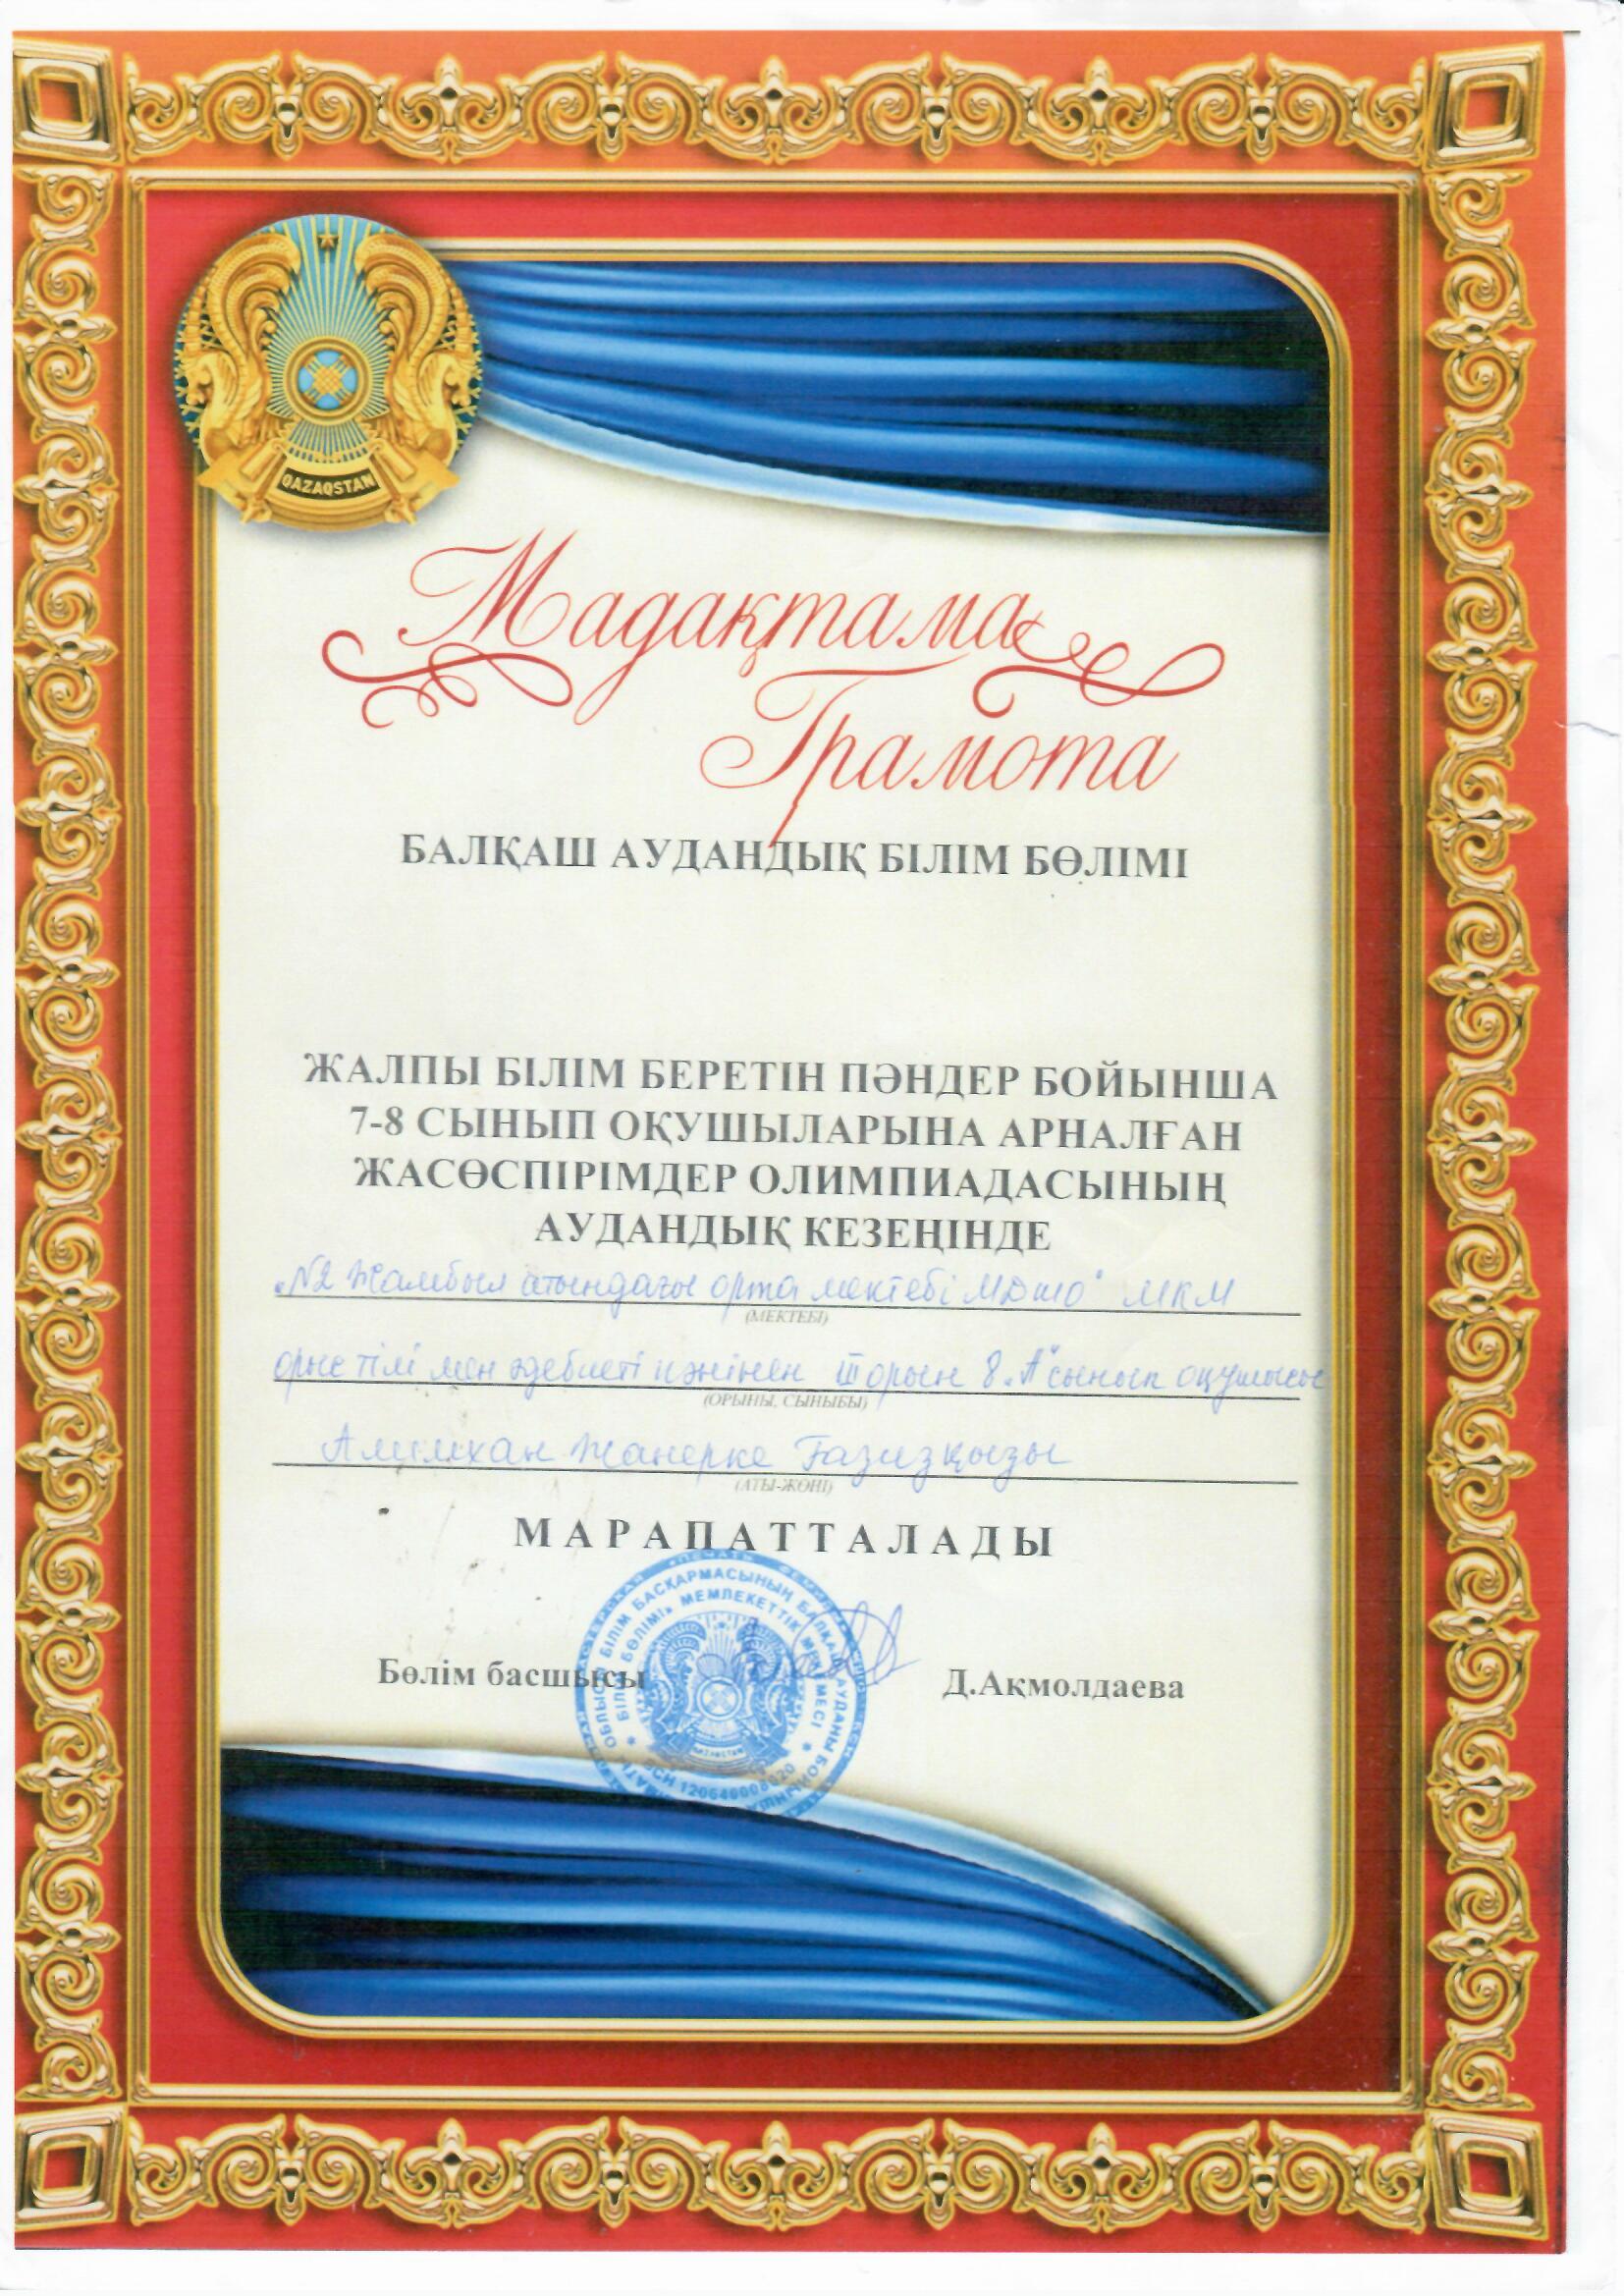 QAZAQSTAN
Мадақтама
Грамота
БАЛҚАШ АУДАНДЫҚ БІЛІМ БӨЛІМІ
ЖАЛПЫ БІЛІМ БЕРЕТІН ПӘНДЕР БОЙЫНША
7-8 СЫНЫП ОҚУШЫЛАРЫНА АРНАЛҒАН
ЖАСӨСПІРІМДЕР ОЛИМПИАДАСЫНЫҢ
АУДАНДЫҚ КЕЗЕҢІНДЕ
„№2 Жамбыл атындағы орта мектебі МДШО" МКМ
(МЕКТЕБІ)
орыс тілі мен әдебиеті пәнінен ІІІ орын 8 „А" сынып оқушысы
(ОРЫНЫ, СЫНЫБЫ)
Жанерке Ғазизқызы
(АТЫ-ЖӨНІ)
МАРАПАТТАЛАДЫ
БІЛІМ БАСҚАРМАСЫНЫҢ БАЛҚАШ АУДАНЫ БОЙЫНША
БІЛІМ БӨЛІМІ» МЕМЛЕКЕТТІК МЕКЕМЕСІ
Бөлім басшысы Д.Ақмолдаева